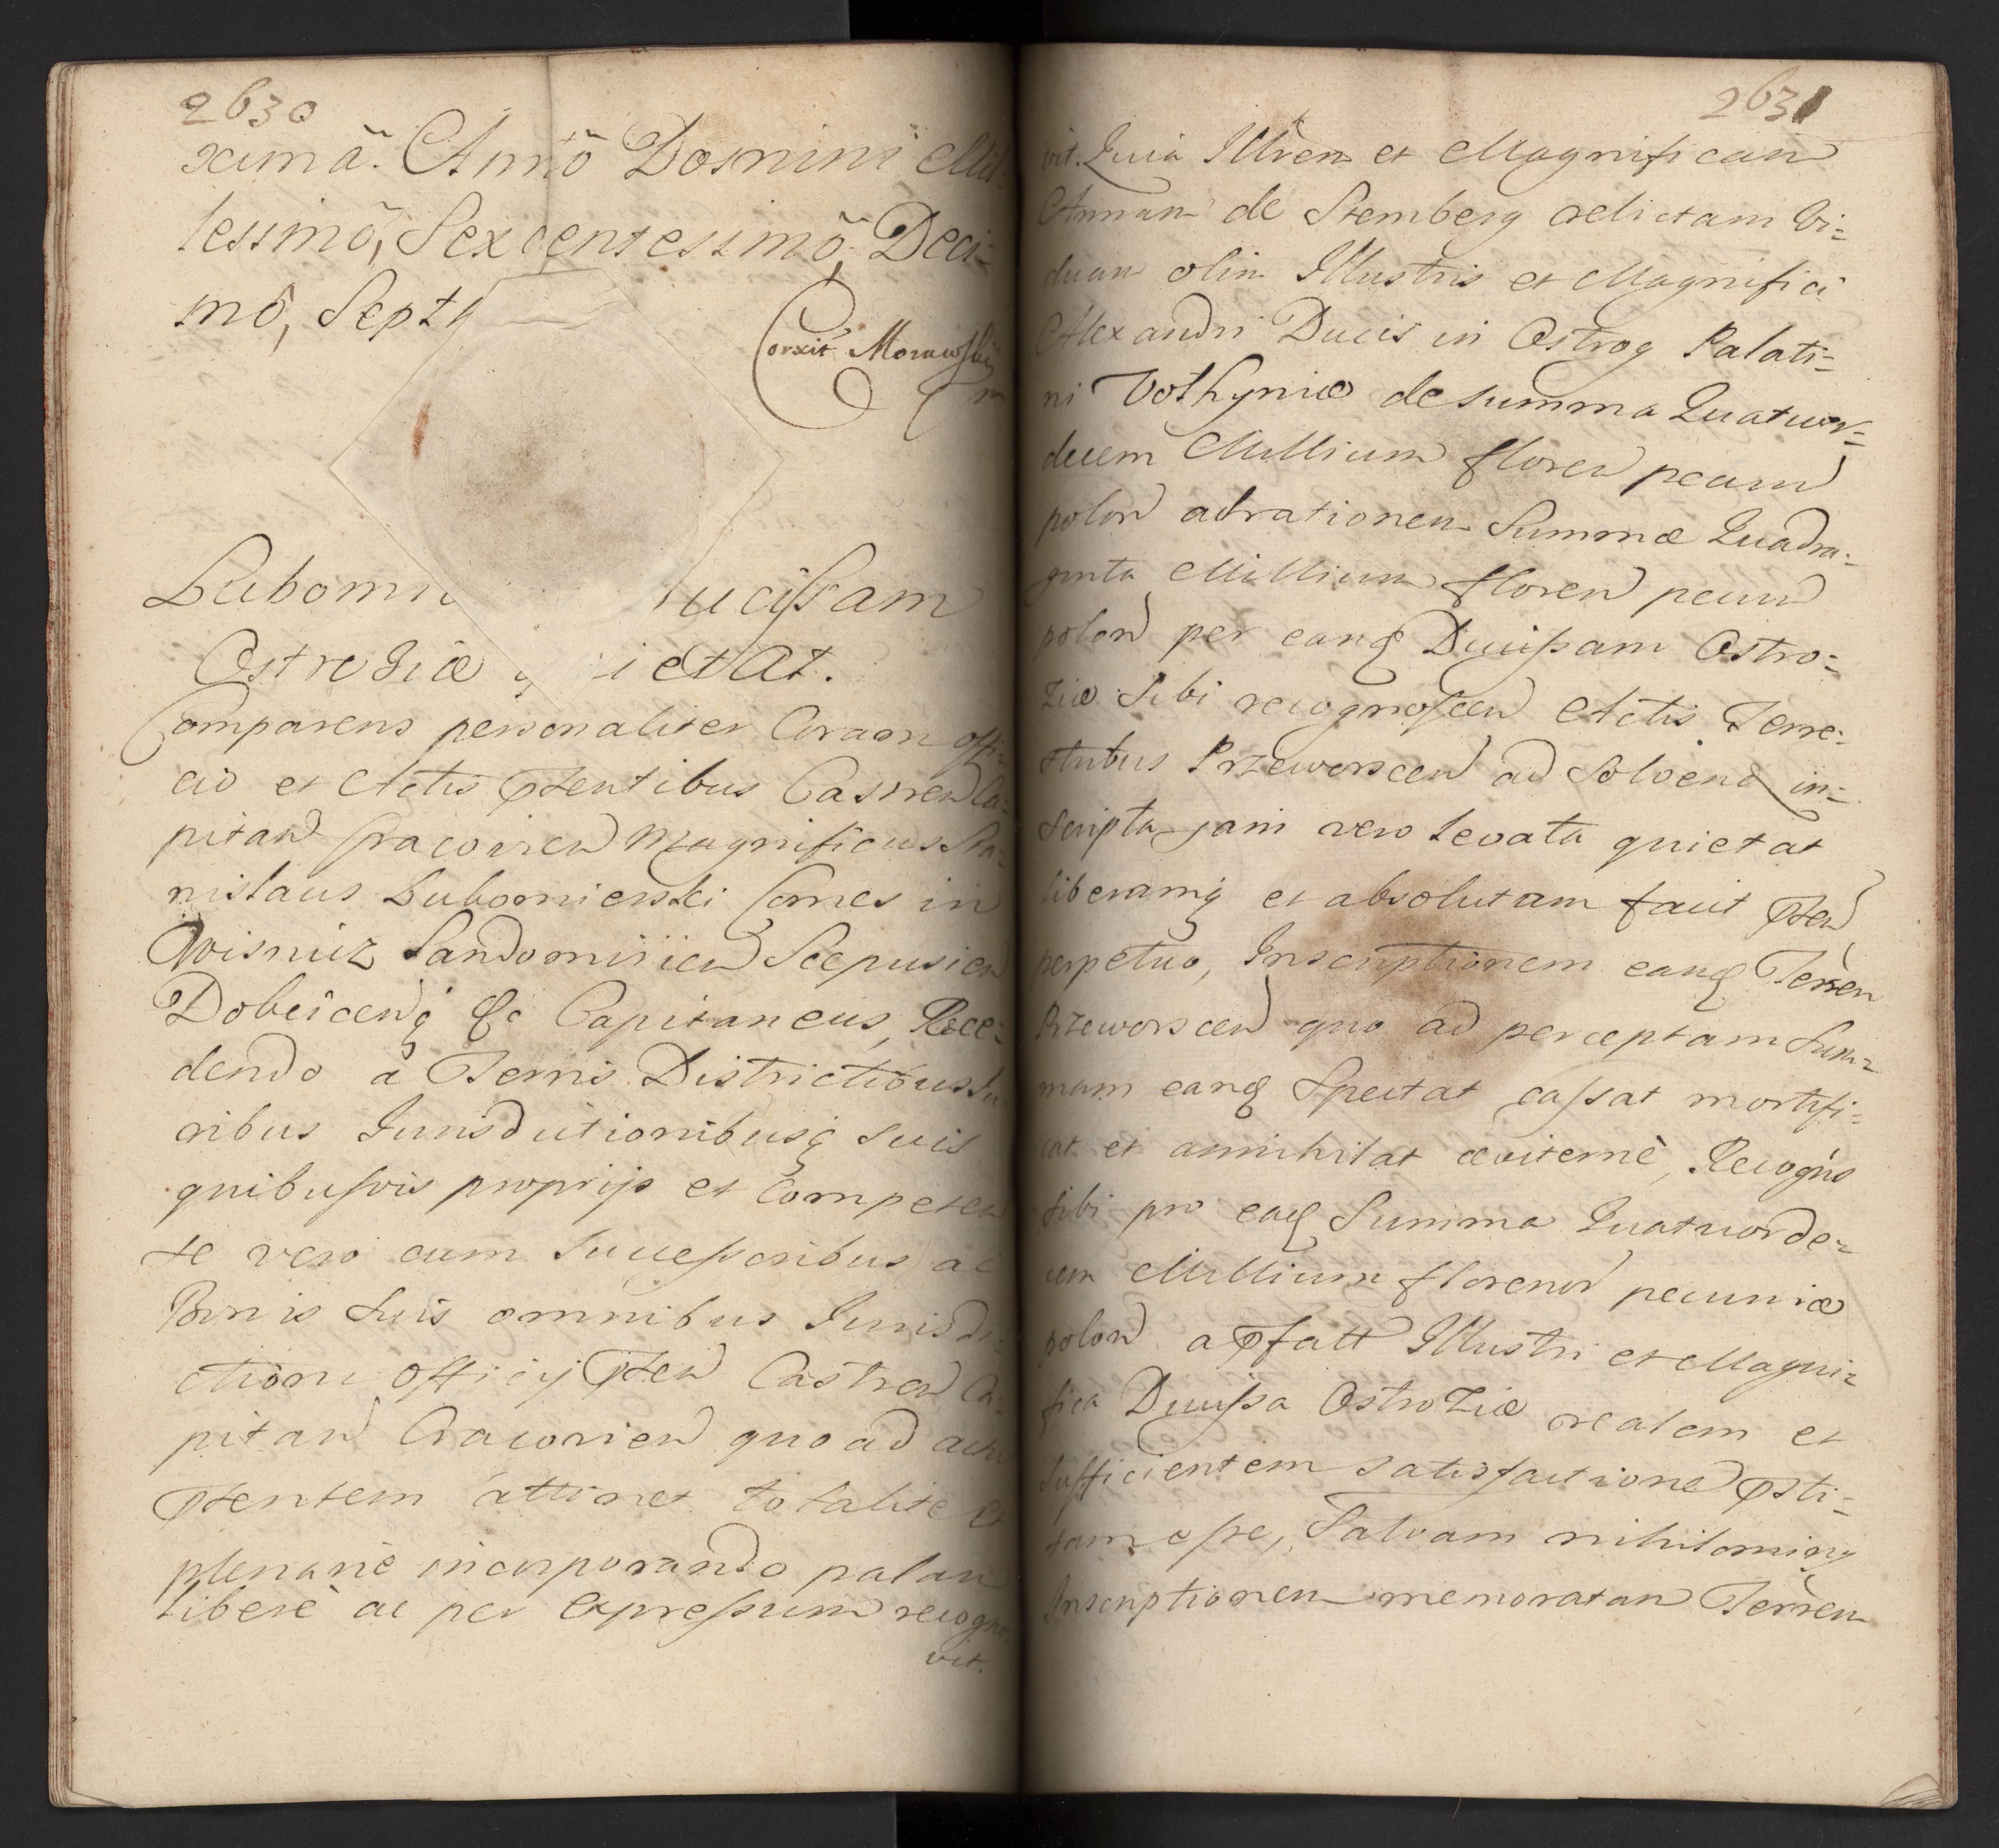 2630
ximã. Annõ Domini Mil-
lessimõ, Sexcentessimõ, Deci-
mõ, Sept
Correxit Morawski
mp
Lubomi ucissam
Ostrogiæ ietat.
Comparens personaliter Coram offi-
cio et Actis pntentibus Castren Ca-
pitan Cracovien Magnificus Sta-
nislaus Lubomierski Comes in
Wisnicz Sandomirien Scepusien
Dobcicenq &c Capitaneus, Rece-
dendo à Terris Districtibus Ju
ribus Jurisdictionibusq suis
quibusvis proprijs et Competen
te vero cum Successoribus ac
Bonis suis omnibus Jurisdi-
ctioni officij pnten Castren Ca-
pitan Cracovien quo ad actu
pntentem attinet totalite et
plenariè incorporando palam
liberè ac per Expressum recogno
vit.
2631
vit. Quia Illren et Magnificam
Annam de Stemberg relictam Vi-
duam olim Illustris et Magnifici
Alexandri Ducis in Ostrog Palati-
ni Volhyniæ de summa Quatuor-
decem Millium floren pecun
polon ad rationem Summæ Quadra-
ginta Millium floren pecun
polon per eand Ducissam Ostro-
ziæ Sibi recognoscen Actis Terre-
stribus Przeworscen ad Solvend in-
scripta jam vero levata quietat
liberamq et absolutam facit pnten
perpetuo, Inscriptionem eand Terren
Przeworscen quo ad perceptam Sum-
mam eand Spectat cassat mortifi-
cat et annihilat æviternè, Recogns
sibi pro ead Summa Quatuorde-
cem Millium florenor pecuniæ
polon a pfatt Illustri et Magni-
fica Ducissa Ostroziæ realem et
sufficientem satisfactione psti-
tam esse, Salvam nihilominq
Inscriptionem memoratam Terren